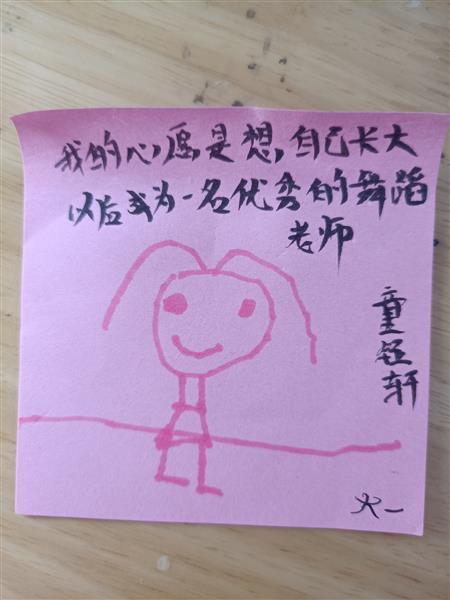 我的心愿是想,自己长大
以后成为一名优秀的舞蹈
老师
童钰轩
大一